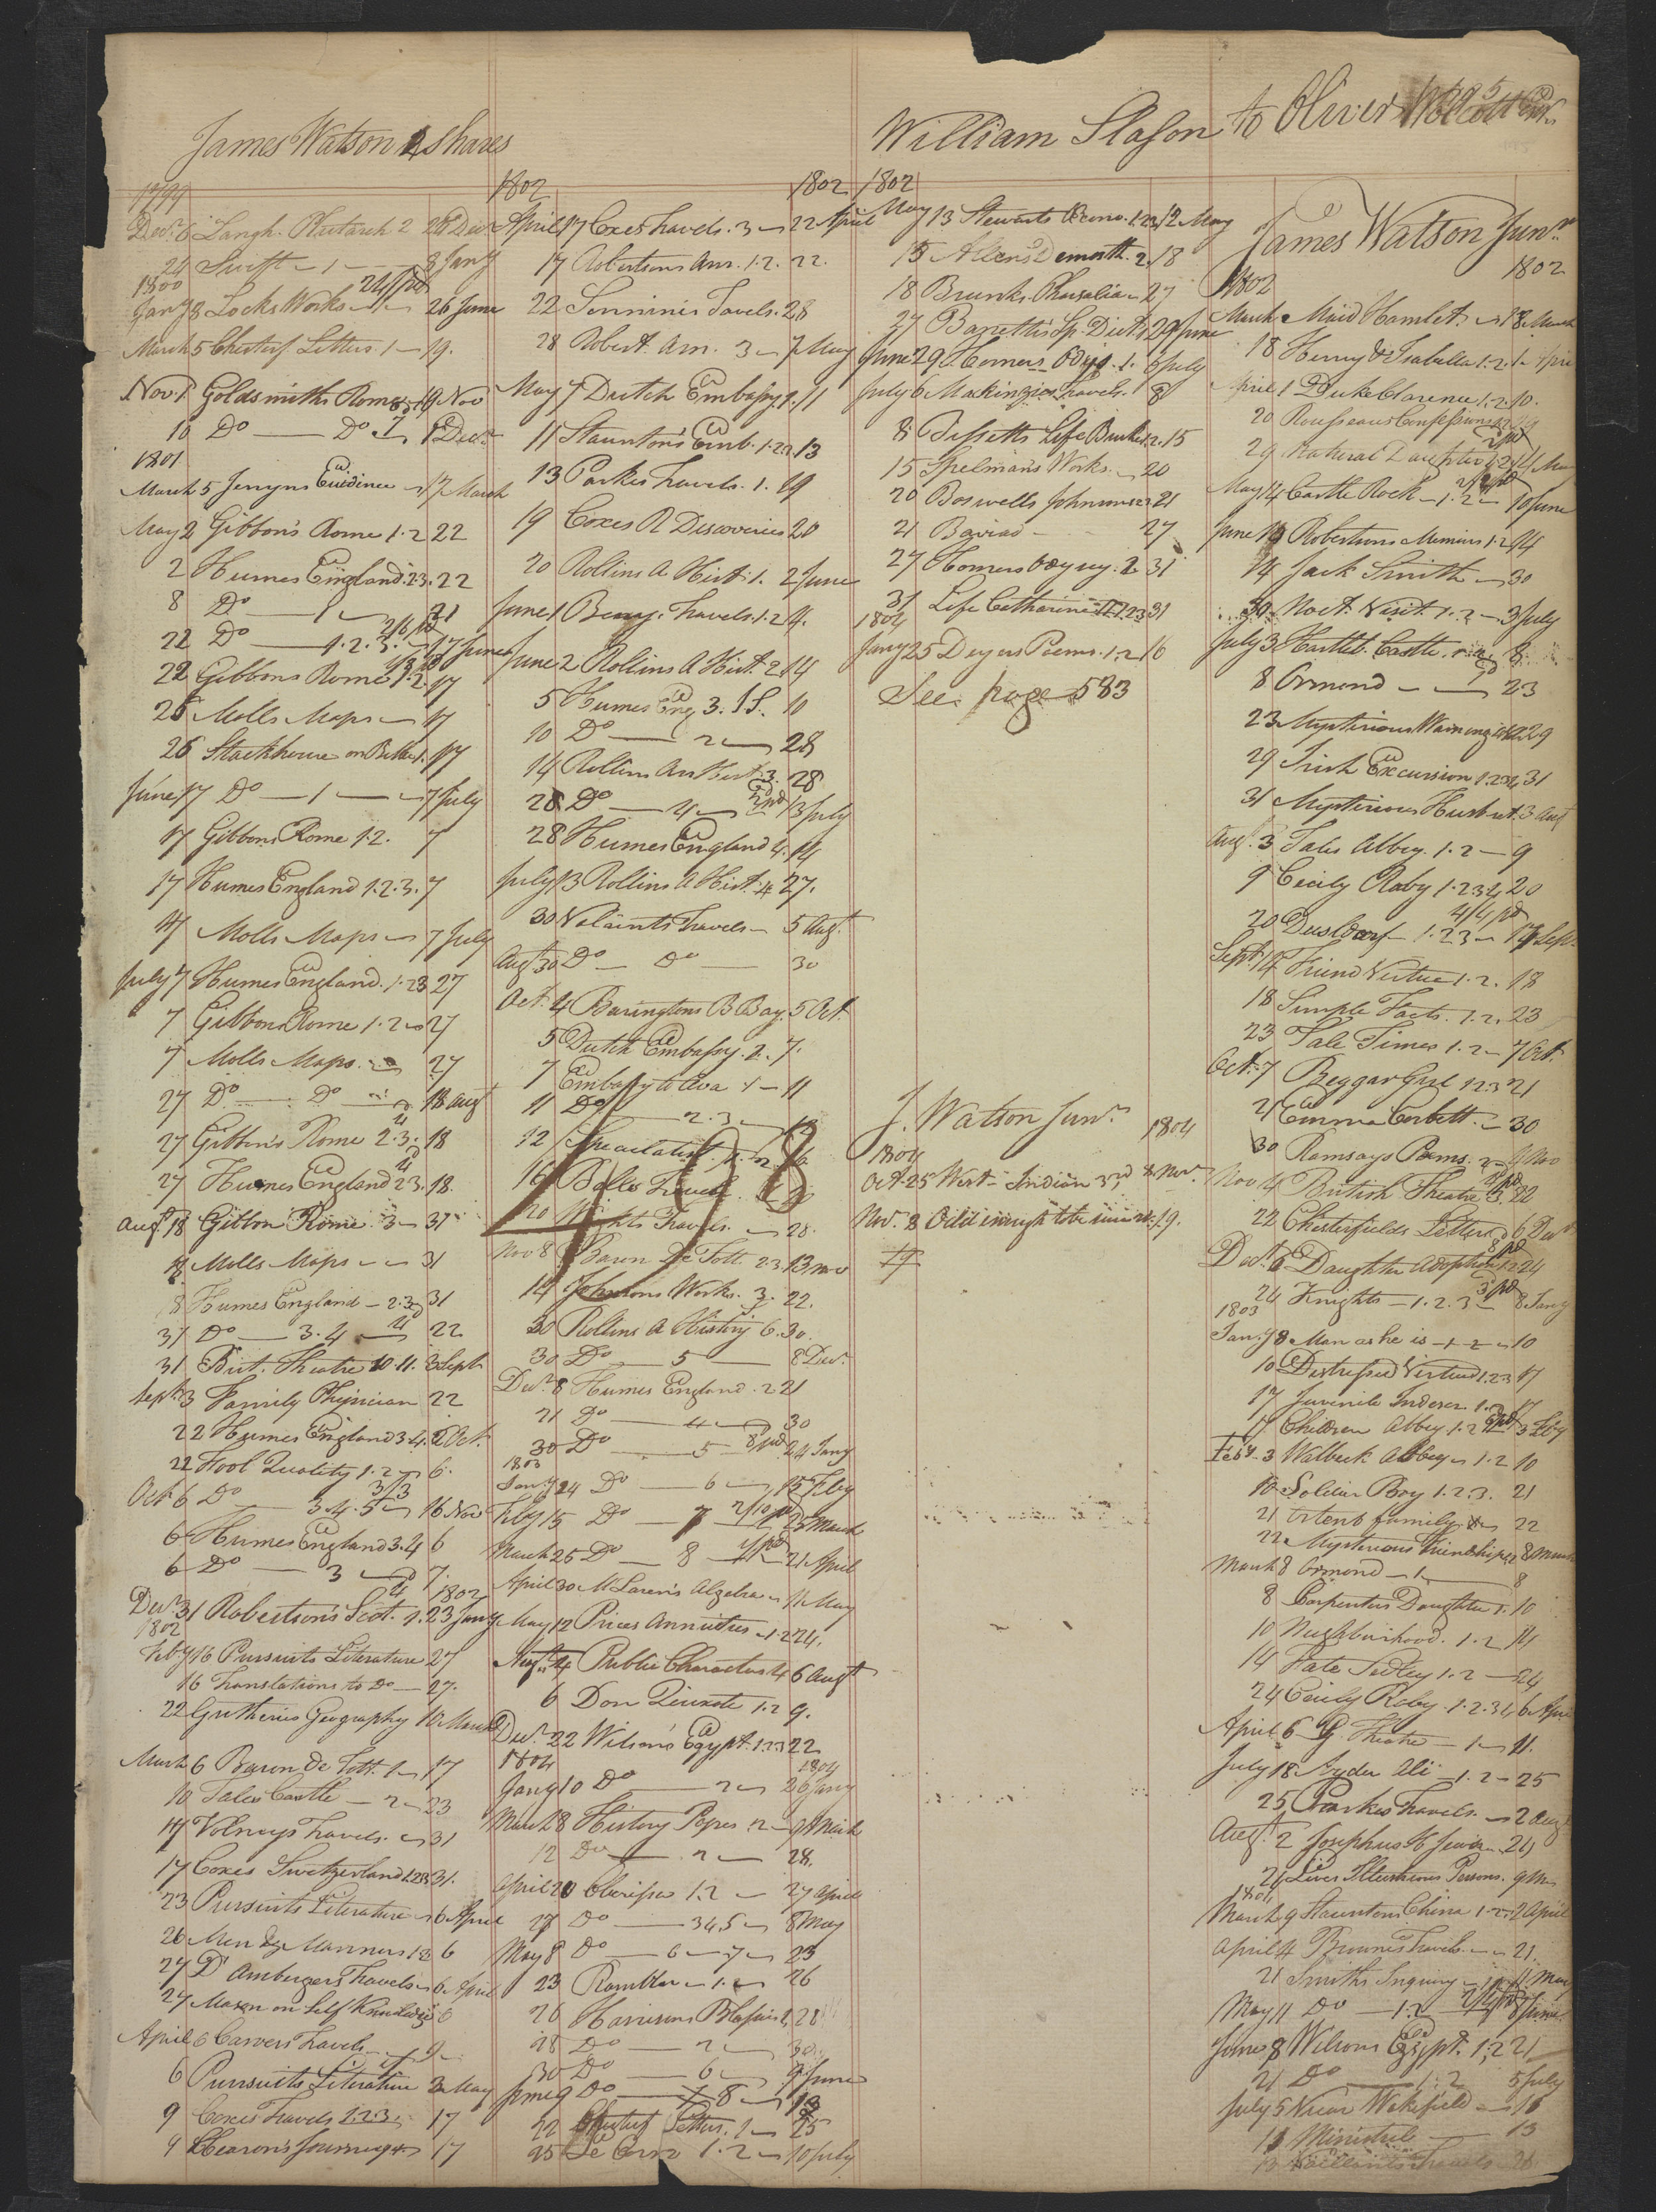 James Watson 2 shares
1799
Decr. 6 Langh. Plutarch 2 26 Decr
24 Swift - 1 - 8 Jany
1800
Jany 8 Locks Works - 1 - 26 June
March 5 Chesterf. Letters 1 - 19.
Novr. 1 Goldsmiths Rome 19 Nov
10 Do - Do 1 Decr
1801
March 5 Jenyns Evidence - 17 March
May 2 Gibbon's Rome 1.2 22
2 Humes England 2.3. 22
8 Do - 1 - 21
22 Do - 1.2.3. - 17 June
22 Gibbons Rome 1.2. 17
26 Molls Maps - 17
26 Stackhouse on Bible 1. 17
June 17 Do - 1 - 7 July
17 Gibbons Rome 1.2. 7
17 Humes England 1.2.3. 7
17 Molls Maps - 7 July
July 7 Humes England. 1.2.3 27
7 Gibbons Rome 1.2 - 27
7 Molls Maps. - 27
27 Do - Do - 18 Augt
27 Gibbon's Rome 2.3. 18
27 Humes England 2.3. 18.
Augt 18 Gibbon Rome 3 - 31
18 Molls Maps - - 31
18 Humes England - 2.3 31
31 Do - 3.4 - 22
31 Brit. Theatre 10.11. 3 Sept
Sept. 3 Family Physician 22
22 Humes England 3.4. 6 Oct.
22 Fool Quality 1.2 - 6.
3/3
Oct 6 Do - 3.4.5 - 16 Nov
6 Humes England 3.4 6
6 Do - 3 - 7.
1802
Decr. 31 Robertson's Scot. 1. 23 Jany
1802
Feby 16 Pursuits Literature 27
16 Translations to Do - 27.
22 Gutheries Geography 10 March
March 6 Baron de Tott. 1 - 17
10 Tales Castle - 2 - 23
17 Volneys Travels. - 31
17 Coxes Switzerland 1.2.3 31.
23 Pursuits Literature - 6 April
26 Men & Manners 1.2 6
27 D'Ambergers Travels - 6 April
27 Mason on Self Knowledge 6
April 6 Carvers Travels - 9
6 Pursuits Literature 3 May
9 Coxes Travels 1.2.3 - 17
9 Hearon's Journey - 17
1802 1802
April 17 Coxes Travels. 3 - 22 April
17 Robertsons Am. 1.2. 22.
22 Sonninis Tavels. 28
28 Robert. Am. 3 - 7 May
May 7 Dutch Embassy 1. 11
11 Staunton's Emb. 1.2.3 13
13 Parkes Travels. 1. 19
19 Coxes R Discoveries 20
20 Rollins A Hist. 1. 2 June
June 1 Travels. 1.2 4.
June 2 Rollins A Hist. 2. 14
5 Humes Eng 3. 10
10 Do - 2 - 28
14 Rollins An Hist. 3. 28
28 Do - 4 - 13 July
28 Humes England 4. 14
July 13 Rollins A Hist. 4 27.
30 Valaints Travels - 5 Aug.
Augt 30 Do - Do - 30
Oct. 4 Baringtons B Bay. 5 Oct.
5 Dutch Embassy. 2. 7.
7 Embassy to Ava 1 - 11
11 Do - 2.3 - 12
12 Speculatist
16 Bells Travels
20 Travels. - 28.
498
Nov 8 Baron De Tott. 2.3. 13 Nov
14 Johnsons Works. 3. 22.
30 Rollins A History 6. 30.
30 Do - 5 - 8 Decr.
Decr. 8 Humes England. 2 21
21 Do - 4 - 30
30 Do - 5 - 24 Jany
1803
Jany 24 Do - 6 - 15 Feby
Feby 15 Do - 7 2/10 pd 25 March
March 25 Do - 8 - 21 April
April 30 McLaren's Algebra - 11 May
May 12 Prices Annuities - 1.2 24.
Augt. 4 Public Characters 4 6 Augt
6 Don Quixote 1.2 9.
Decr. 22 Wilson's Egypt. 1.2.3 22
1804 1804
Jany 10 Do - 2 - 26 Jany
March 8 History Popes 1.2 - March
12 Do - 2 - 28.
April 20 Clarissa 1.2 - 27 April
27 Do - 3.4.5 - 8 May
May 8 Do - 6 - 7 - 23
23 Rambler - 1. - 26
26 Harrisons 28
28 Do - 2 - 30.
30 Do - 6 - 9 June
June 9 Do - 8 - 13
22 Chesterf Letters. 1 - 25
25 1.2 - 10 July
William Slason to Oliver Wolcott
1802
May 13 Stewarts 1.2.3 12 May
15 Allens Demosth. 2. 18
18 Brunks. Pharsalia - 27
27 Baretti's Sp. Dict. 29 June
June 29 Homers Odys. 1. 6 July
July 6 Makinzies Travels. 1 8
8 Bissetts Life Burke 1.2. 15
15 Spelman's Works. - 20
20 Boswells Johnson 1.2.3 21
21 Baviad - 27
27 Homers Odyssey. 2 31
31 Life Catharine 1.2.3 31
1804
Jany 25 Dyers Poems. 1.2 16
See page 583
J. Watson Junr.
1804 1804
Oct. 25 West Indian 3rd 8 Nov.
Nov. 8 Odd enough to be sure 19.
19
James Watson Junr.
1802 1802
March Maid Hamlet. - 18 March
18 Henry & Isabella 1.2. 1 - April
April 1 Duke Clarence 1.2. 10.
20 Rousseaus Confessions 1.2 29
29 Natural Daughter 1.2. 14 May
May 14 Castle Rock - 1.2 - 10 June
June 10 Robertsons Memoirs 1.2 14
14 Jack Smith - 30
30 Noct. Visit. 1.2 - 3 July
July 3 Hartleb. Castle. 8
8 Ormond - - 23
23 Mysterious Warning 1.2 29
29 Irish Excursion 1.2.3.4 31
31 Mysterious Husband 3 Augt
Augt. 3 Tales Abbey. 1.2 - 9
9 Cecily Raby 1.2.3.4 20
4/4 pd
20 Dusldorf - 1.2.3 - 14 Sept.
Sept. 14 Friend Virtue 1.2. 18
18 Simple Facts. 1.2. 23
23 Tale Times 1.2 - 7 Oct.
Oct. 7 Beggar Girl 1.2.3 21
21 Emma Corbett. - 30
30 Ramsays Poems. 2 - 4 Nov
Nov 4 British Theatre 22
22 Chesterfields Letters 6 Decr
Decr. 6 Daughter Adoption 1.2 24
24 Knights - 1.2.3 - 8 Jany
1803
Jany 8 Man as he is - 1.2 - 10
10 Distressed Virtue 1.2.3 17
17 Juvenile Indescr. 1.2 17
17 Children Abbey 1.2 3 Feby
Feby. 3 Walbeck Abbey - 1.2 10
10 Soldier Boy 1.2.3. 21
21 Ostent family - 22
22 Mysterious Friendship 1.2 8 March
March 8 Ormond - 1 - 8
8 Carpenters Daughter 1. 10
10 Neighbourhood. 1.2 14
14 Fate Sedley 1.2 - 24
24 Cecily Raby. 1.2.3.4 6 April
April 6 G. Theatre - 1 - 11.
July 18 Hyder Ali - 1.2 - 25
25 Parkes Travels. - 2 Augt
Augt. 2 Josephus H Jews - 24
24 Lives Illustrious Persons. 9 Mar
1804
March 9 Stauntons China 1.2. 2 April
April 4 Brownes Travels. - - 21.
21 Smiths Inquiry - 1. 11 May
May 11 Do - 1.2 8 June.
June 8 Wilsons Egypt. 1.2 21
21 Do - 1.2 5 July
July 5 Vicar Wakefield - 11
11 Minstrel - 13
13 Vaillants Travels 26